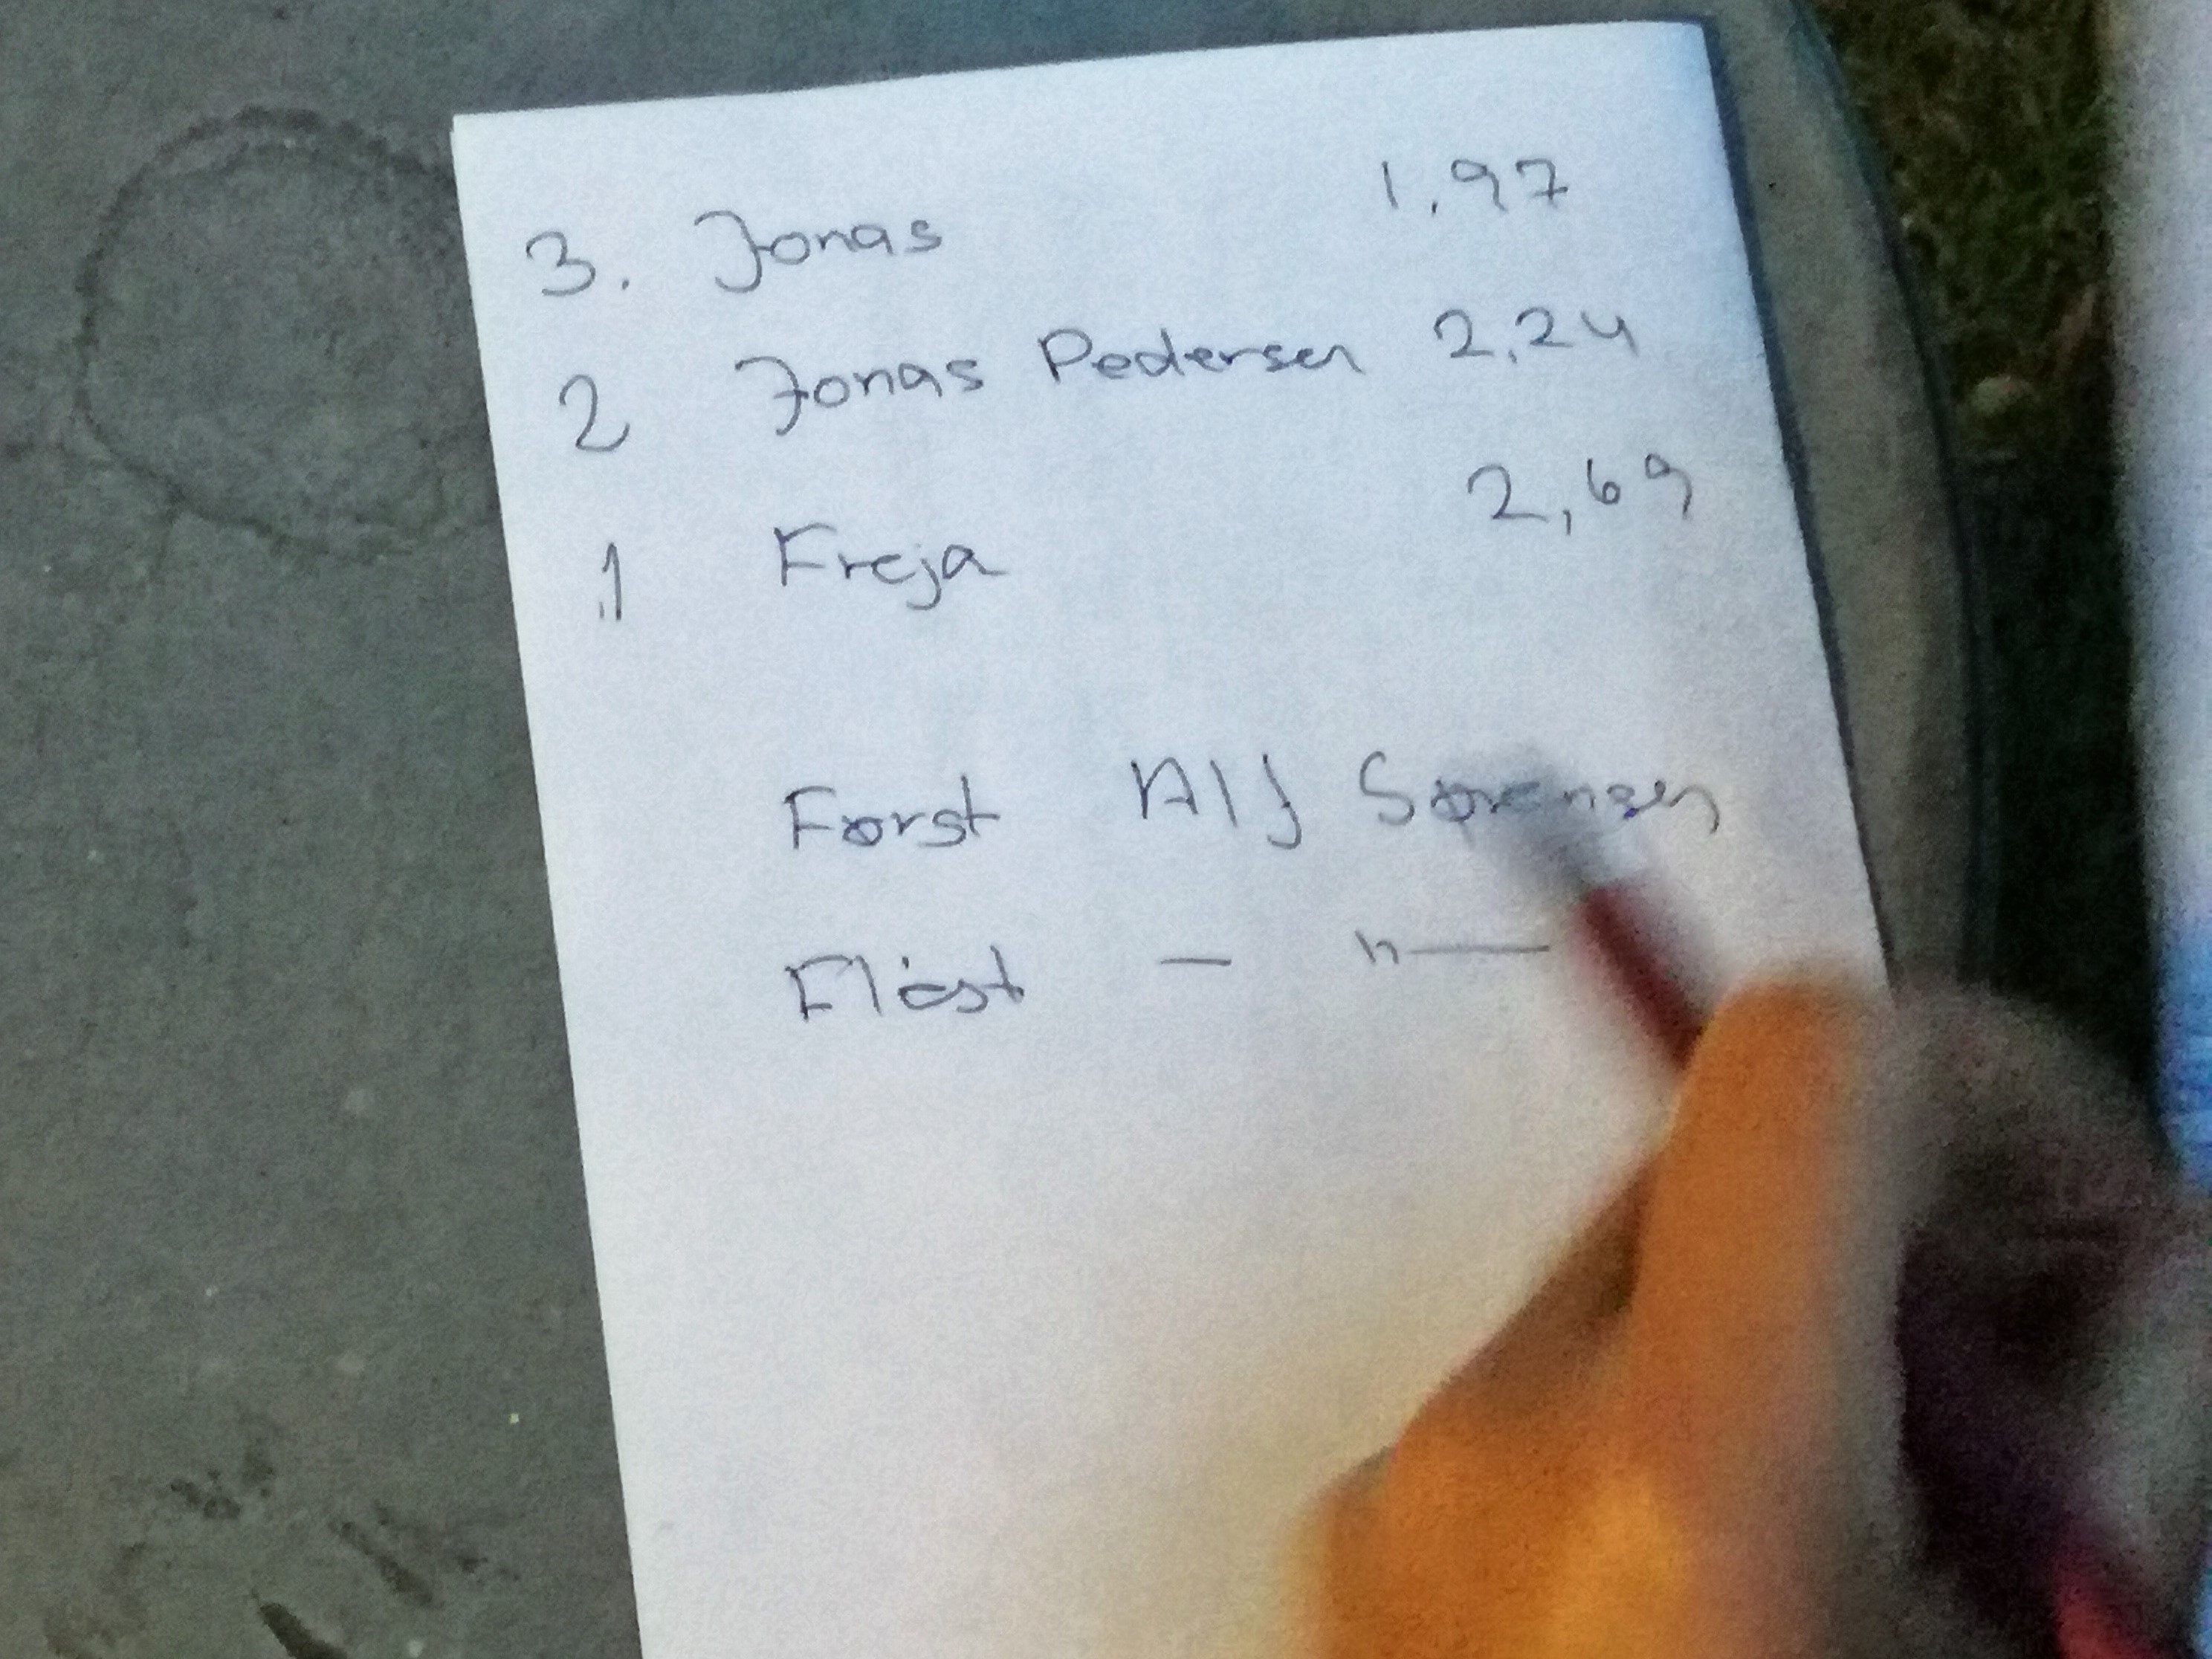 3. Jonas 1,97
2 Jonas Pedersen 2,24
1 Freja 2,69
Først Alf Sørensen
Flest — " —